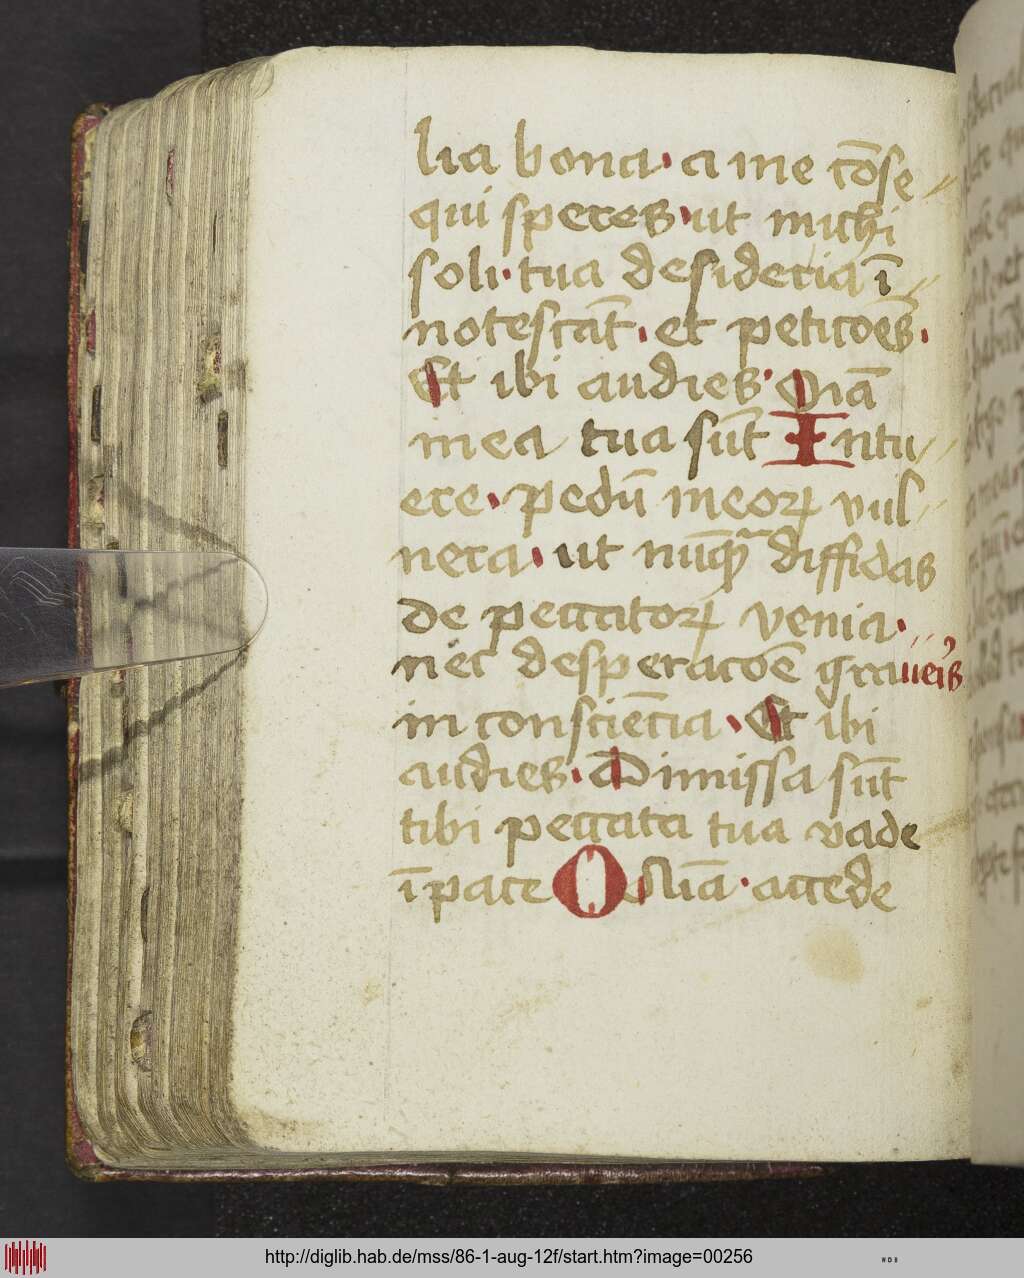 lia bona· a me cōse
qui speres· ut michi
soli· tua desideria ī
notescāt· et peticōes·
Et ibi audies· Oīa
mea tua sūt Intu
ere· pedū meoꝝ vul
nera· ut nūqͣ diffidas
de peccatoꝝ venia·
nec desperacōe graueis
in consciēcia· Et ibi
audies· Dimissa sūt
tibi peccata tua vade
ī pace O accede
http://diglib.hab.de/mss/86-1-aug-12f/start.htm?image=00256